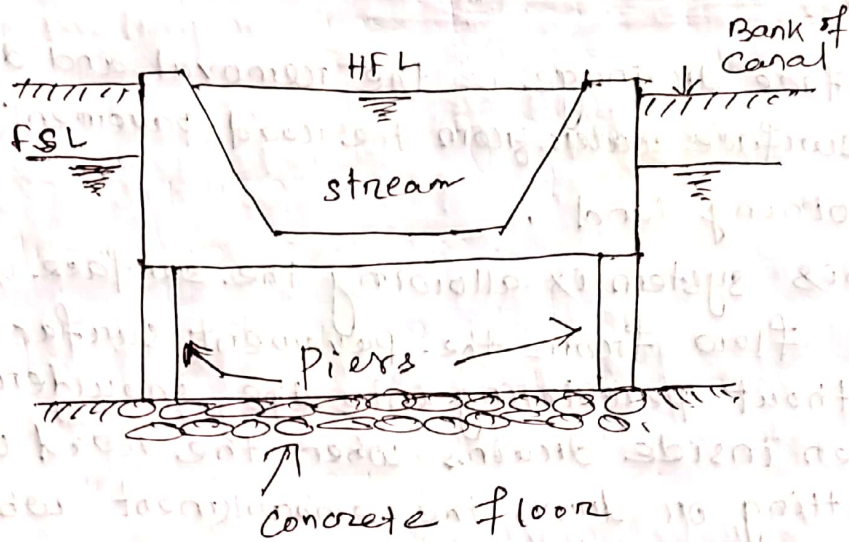 HFL
Bank of
Canal
FSL
stream
Piers
Concrete floor